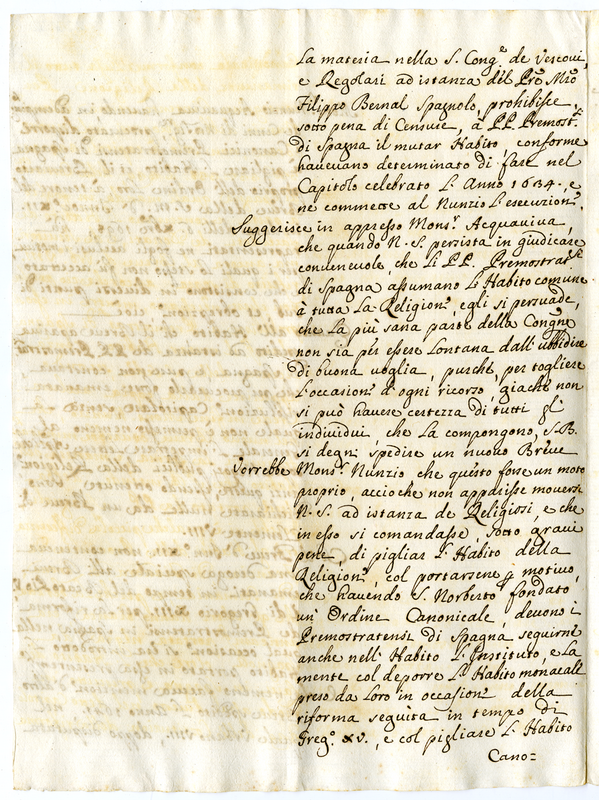 la materia nella S. Cong.e de Vescovi,
e Regolari ad istanza del Pre Mro
Filippo Bernal Spagnolo, prohibisse
sotto pena di Censure, à PP. Premost.i
di Spagna il mutar Habito, conforme
havevano determinato di fare nel
Capitolo celebrato l'Anno 1634., e
ne commette al Nunzio l'esecuzion.e
Suggerisce in appresso Mons.r Acquaviva,
che quando N. S. persista in giudicare
convenevole, che li PP. Premostrat.si
di Spagna assumano l'Habito comune
à tutta la Religion.e, egli si persuade,
che la più sana parte della Congne
non sia per essere lontana dall'ubbidire
di buona voglia, purche, per togliere
l'occasion.e d'ogni ricorso, giache non
si può havere certezza di tutti gl'
individui, che la compongono, S. B.
si degni spedire un nuovo Breve
Vorrebbe Mons.r Nunzio che questo fosse un moto
proprio, accioche non apparisse moversi
N. S. ad istanza de Religiosi, e che
in esso si comandasse, sotto gravi
pene, di pigliar l'Habito della
Religion.e, col portarsene p motivo,
che havendo S. Norberto fondato
un' Ordine Canonicale, devono i
Premostratensi di Spagna seguirne
anche nell'Habito l'Instituto, e la
mente col deporre l'Habito monacale
preso da loro in occasion.e della
riforma seguita in tempo di
Greg.o XV., e col pigliare l'Habito
Cano=